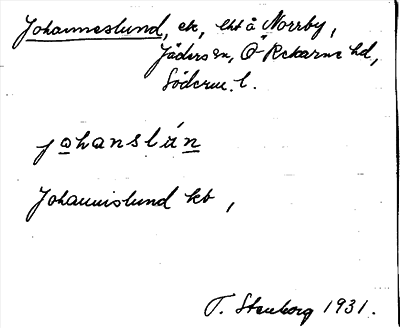 Johanneslund, ek, lht å Norrby,
Jäders sn, Ö Rekarne hd,
Söderm. l.
johanslún
Johannislund kb,
T. Stenborg 1931.